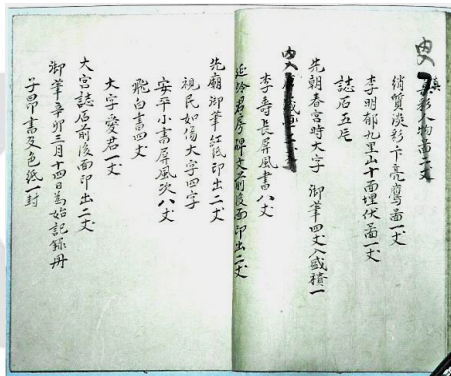 內
眞彩人物畵二丈
綃質淡彩卞亮鷹畵一丈
李明郁九里山十面埋伏畵一丈
誌石五片
先朝春宮時大字 御筆四丈入盛樻一
李壽長屛風書八丈
延齡君房碑文前後面印出二丈
先廟御筆紅紙印出二丈
視民如傷大字四字
安平小書屛風次八丈
飛白書四丈
大字愛君一丈
大宮誌石前後面印出二丈
御筆辛卯三月十四日爲始記錄冊
子昂書及色紙一封